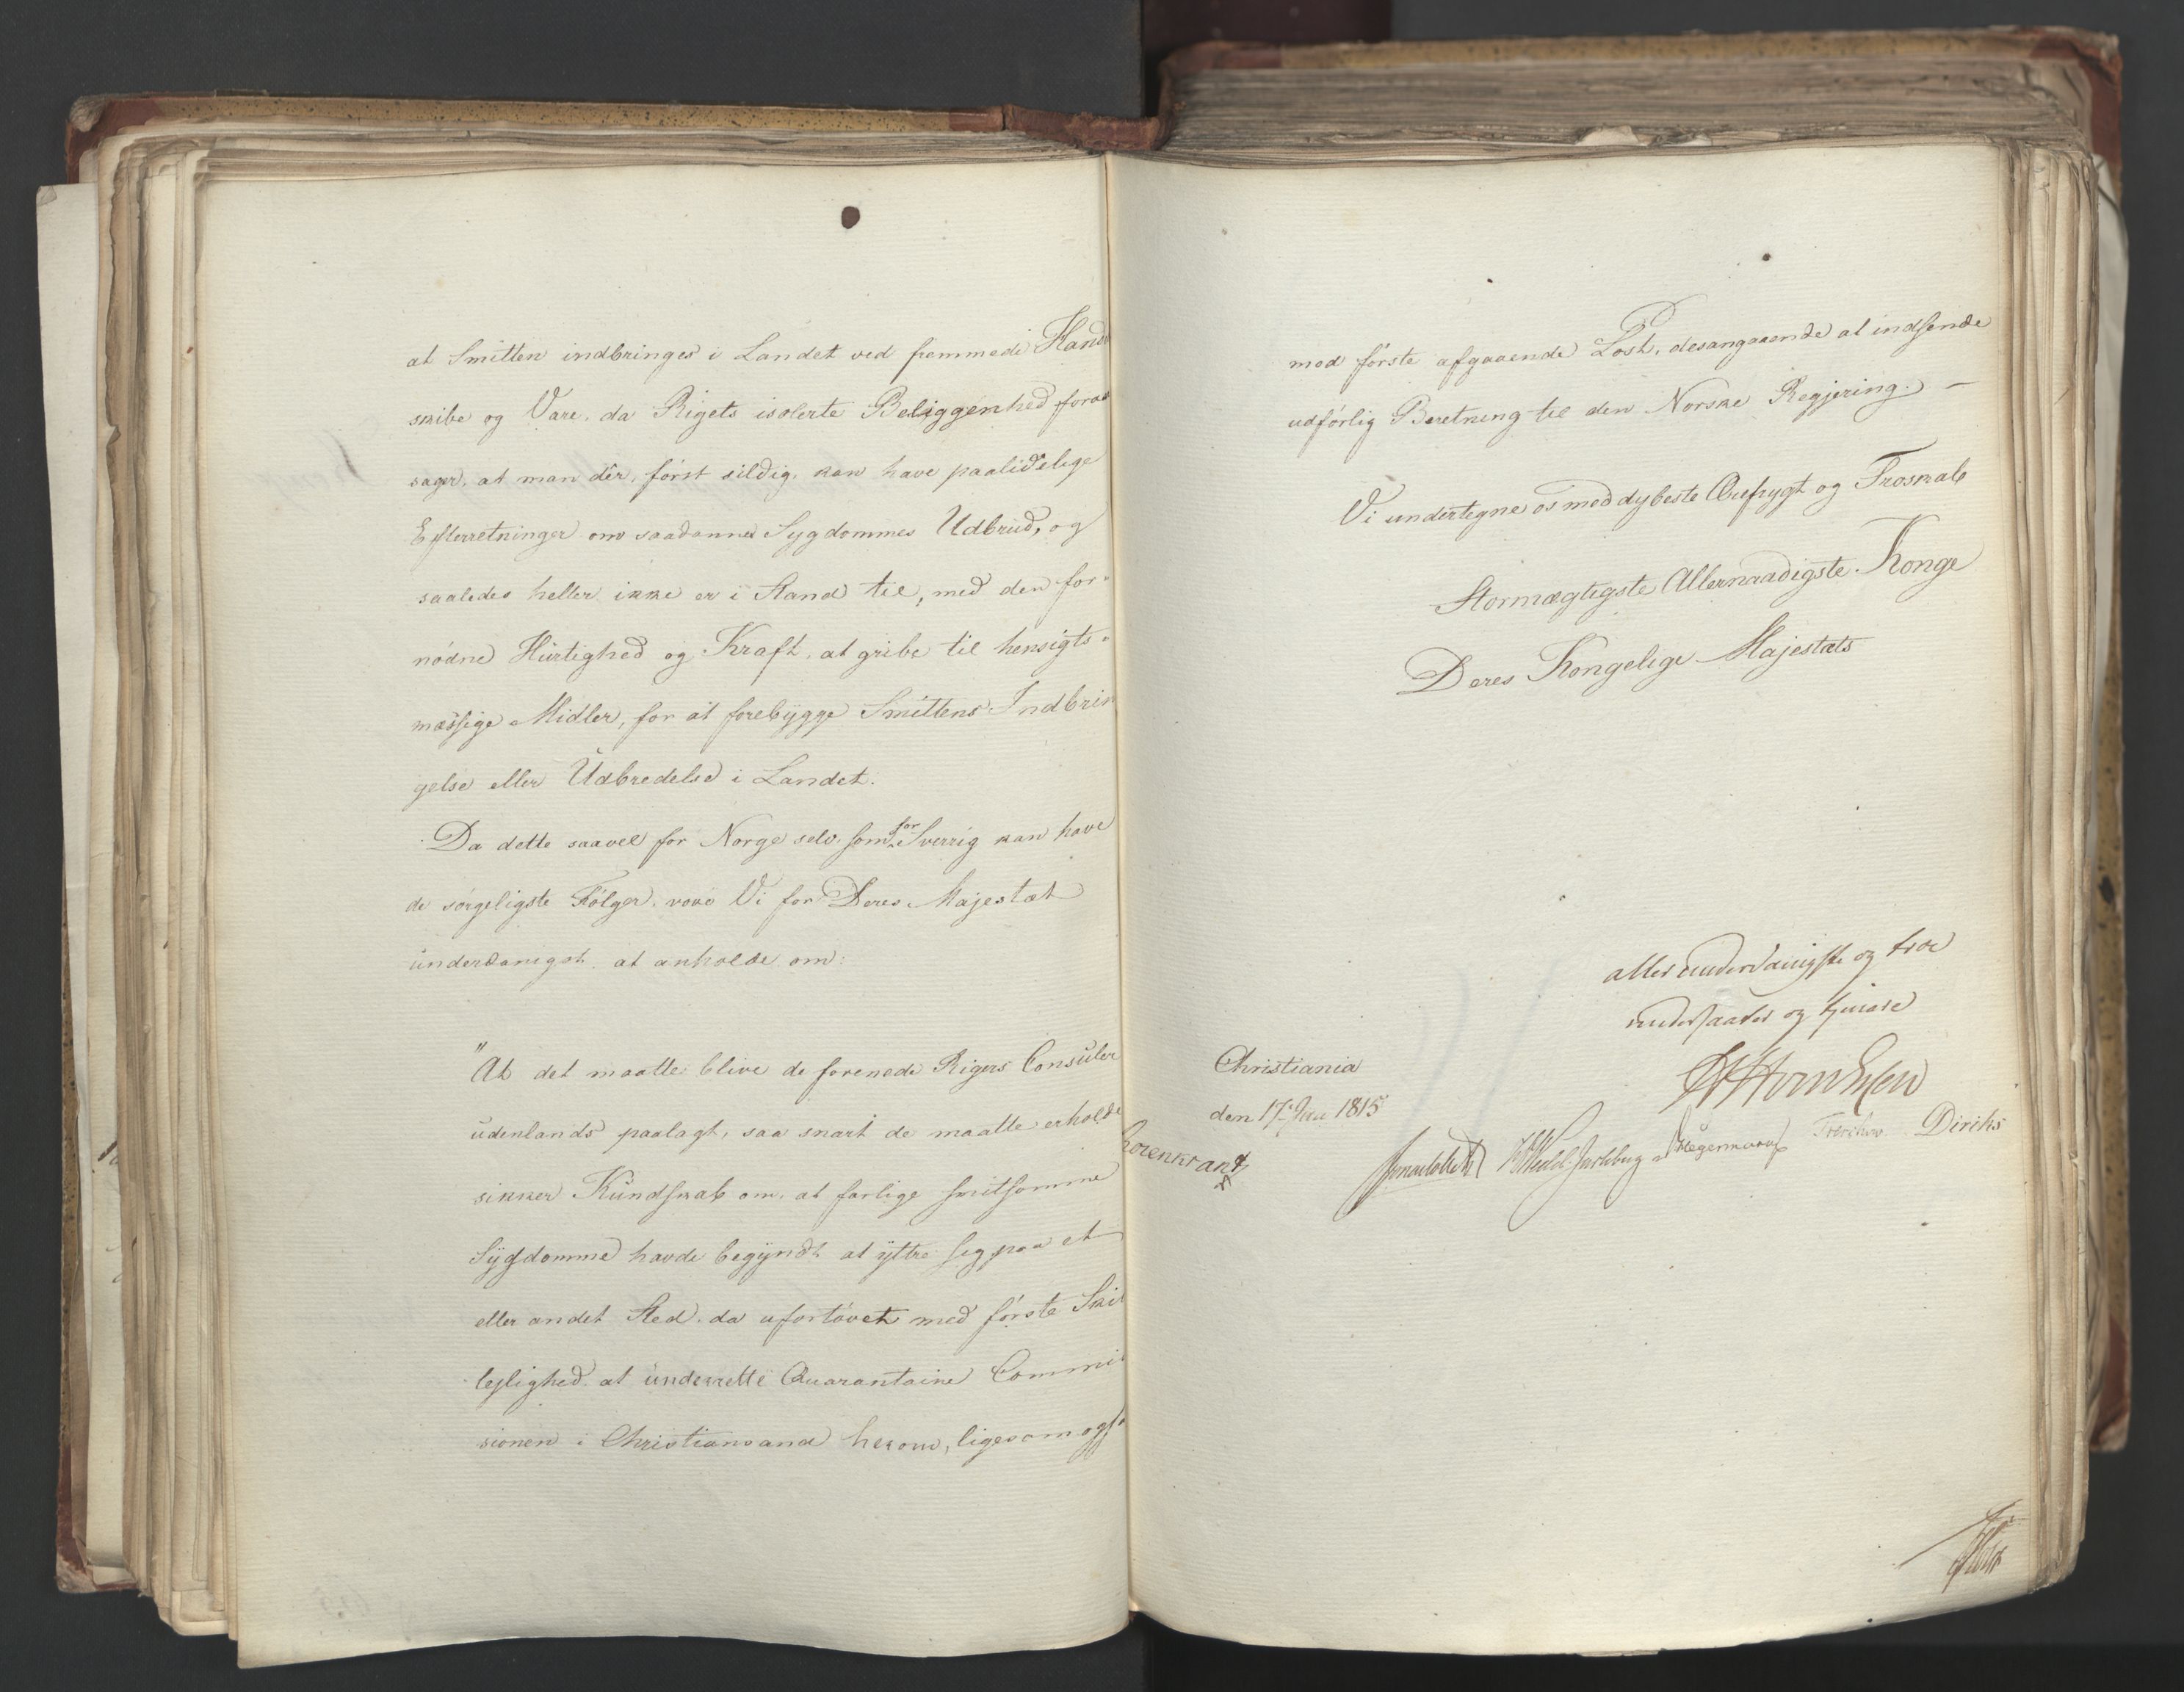 at Smitten indbringes i Landet ved fremmede Hand
skibe og Vare, da Rigets isolerte Beliggenhed foraar
sager, at man dêr, först sildig, kan have paalidelige
Efterretninger om saadanne Sygdommes Udbrud, og
saaledes heller ikke er i Stand til, med den for-
nödne Hurtighed og Kraft, at gribe til hensigts-
mæssige Midler, for at forebygge Smittens Indbrin
gelse eller Udbredelse i Landet.
Da dette saavel for Norge selv, som for Sverrig kan have
de sörgeligste Fölger, vove Vi for Deres Majestæt
underdanigst at anholde om:
"At det maatte blive de forenede Rigers Consuler
udenlands paalagt, saa snart de maatte erholde
sikker Kundskab om, at farlige smitsomme
Sygdomme havde begyndt at yttre sig paa et
eller andet Sted, da ufortövet med förste Skib
lejlighed at underrette Quarantaine Commis
sionen i Christiansand herom, ligesom ogsa
med förste afgaaende Post, desangaaende at indsende
udförlig Beretning til den Norske Regjering. —
Vi undertegne os med dybeste Ærefrygt og Troskab
Stormægtigste Allernaadigste Konge
Deres Kongelige Majestæts
allerunderdanigste og troe
undersaatter og tjenere
Christiania
den 17 Jan 1815
Sommerhielm Wedel Jarlsberg Hegermann Treschow Diriks
Rosenkrantz